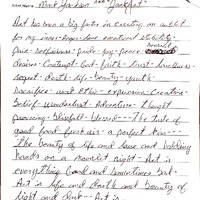 Mark Jackson "Jackpot"
Art has been a big factor in creating an outlet
for my inner - hope - love - emotional stability -
Pain - selfishness - pride - joy - peace -
desires - Contempt - lust - faith - trust - loneliness
respect - death - life - beauty - youth -
sacrifice - work ethic - expression - Creation -
belief - wanderlust - adventure - thought
provoking - blissful - blessed --- The taste of
good food - fresh air - a perfect kiss ---
The beauty of life and love and holding
hands on a moonlit night - Art is
everything Good and sometimes bad -
Art is life and death and beauty of
light and dark - Art is